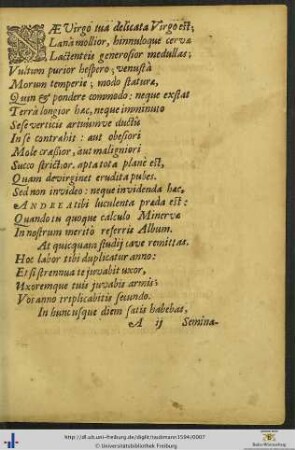 NÆ Virgo tua delicata Virgo est;
Lana mollior, hinnuloque cerva
Lactenteis generosior medullas;
Vultum purior hespero; venusta
Morum temperie; modo statura,
Quin & pondere commodo: neque exstat
Terra longior hac, neque imminuto
Sese verticis artuumve ductu
In se contrahit: aut obesiori
Mole crassior, aut maligniori
Succo strictior. apta tota plane est,
Quam devirginet erudita pubes.
Sed non invideo: neque invidenda hac,
ANDREA tibi luculenta præda est:
Quando tu quoque calculo Minerva
In nostrum merito referris Album.
At quicquam studij cave remittas.
Hoc labor tibi duplicatur anno:
Et si strennua te juvabit uxor,
Uxoremque tuis juvabis armis;
Vos anno triplicabitis secundo.
In hunc usque diem satis habebat,
A ij Semina-
http://dl.ub.uni-freiburg.de/diglit/taubmann1594/0007
© Universitätsbibliothek Freiburg